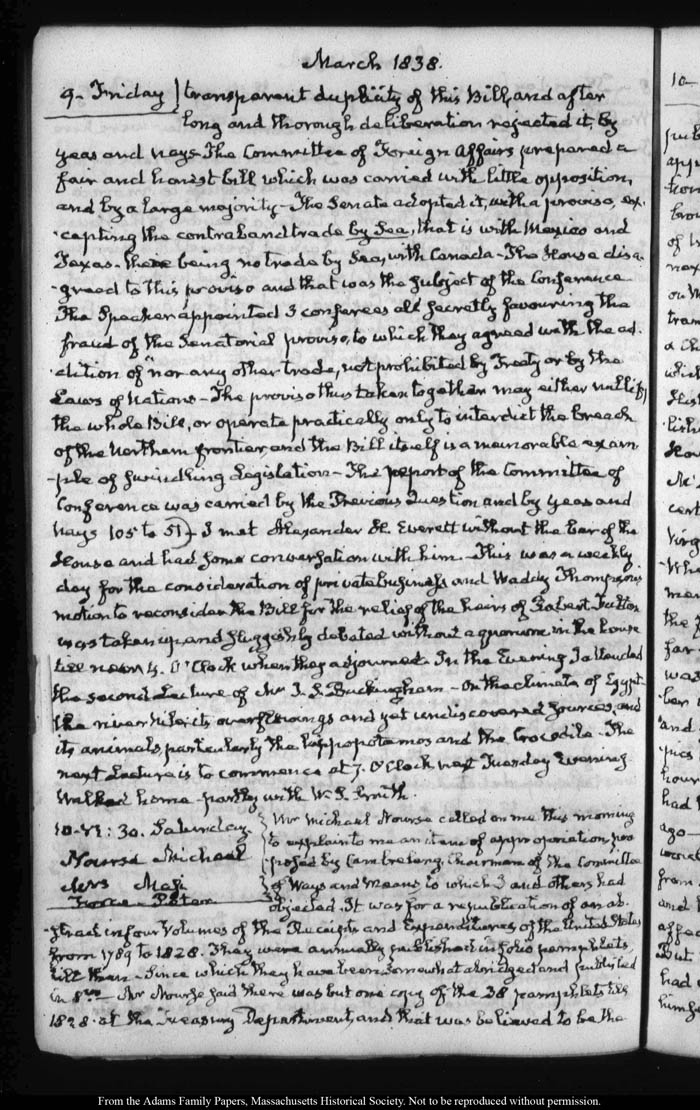 March 1838.
9- Friday } transparent duplicity of this Bill, and after
long and thorough deliberation rejected it, by
yeas and nays. The Committee of Foreign Affairs prepared a
fair and honest bill which was carried with little opposition,
and by a large majority- The Senate adopted it, with a proviso, ex-
-cepting the contraband trade by Sea, that is with Mexico and
Texas- there being no trade by Sea, with Canada- The House disa-
-greed to this proviso and that was the subject of the Conference
The Speaker appointed 3 conferees all secretly favouring the
fraud of the Senatorial proviso, to which they agreed with the ad-
-dition of "nor any other trade, not prohibited by Treaty or by the
Laws of Nations- The proviso thus taken together may either nullify
the whole Bill, or operate practically only to interdict the breach
of the Northern frontier and the Bill itself is a memorable exam-
-ple of swindling Legislation- The report of the Committee of
Conference was carried by the Previous Question and by yeas and
nays 105 to 51- I met Alexander H. Everett without the bar of the
House and had some conversation with him- This was a weekly
day for the consideration of private business and Waddy Thompson's
motion to reconsider the Bill for the relief of the heirs of Robert Fulton
was taken up, and sluggishly debated without a quorum in the house
till near 4. O'Clock when they adjourned. In the Evening I attended
the second Lecture of Mr J. S. Buckingham- On the climate of Egypt
the river Nile its overflowings and yet undiscovered sources, and
its animals, particularly the hippopotamos and the Crocodile- The
next Lecture is to commence at 7. O'Clock next Tuesday Evening
Walked home- partly with W. S. Smith.
10- VI: 30. Saturday.
Nourse Michael
Mrs
Force- Peter
Mr Michael Nourse called on me this morning
to explain to me an item of appropriation pro
-posed by Cambreleng, Chairman of the Committee
of Ways and Means to which I and others had
objected. It was for a republication of an ab-
-stract in four Volumes of the Receipts and Expenditures of the United States
from 1789 to 1828. They were annually published in folio pamphlets,
till then- Since which they have been somewhat abridged and published
in 8vo- Mr Nourse said there was but one copy of the 38 pamphlets till
1828. at the Treasury Department, and that was believed to be the
10-
From the Adams Family Papers, Massachusetts Historical Society. Not to be reproduced without permission.